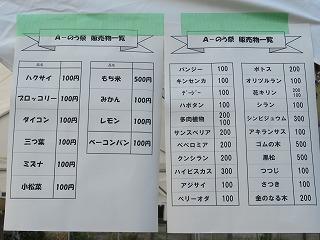 A-のう祭 販売物一覧
品名
ハクサイ 100円
ブロッコリー 100円
ダイコン 100円
三つ葉 100円
ミズナ 100円
小松菜 100円
品名
もち米 500円
みかん 100円
レモン 100円
ベーコンパン 100円
A-のう祭 販売物一覧
パンジー 100
キンセンカ 100
ガーデニア 100
ハボタン 100
多肉植物 200 100
サンスベリア 200
ペペロミア 200
クンシラン 200
ハイビスカス 300
アジサイ 100
ベリーオダ 100
ポトス 200
オリヅルラン 100
花キリン 200 100
シラン 100
シンビジュウム 300
アキランサス 100
ゴムの木 500
黒松 500
つつじ 100
さつき 100
金のなる木 200